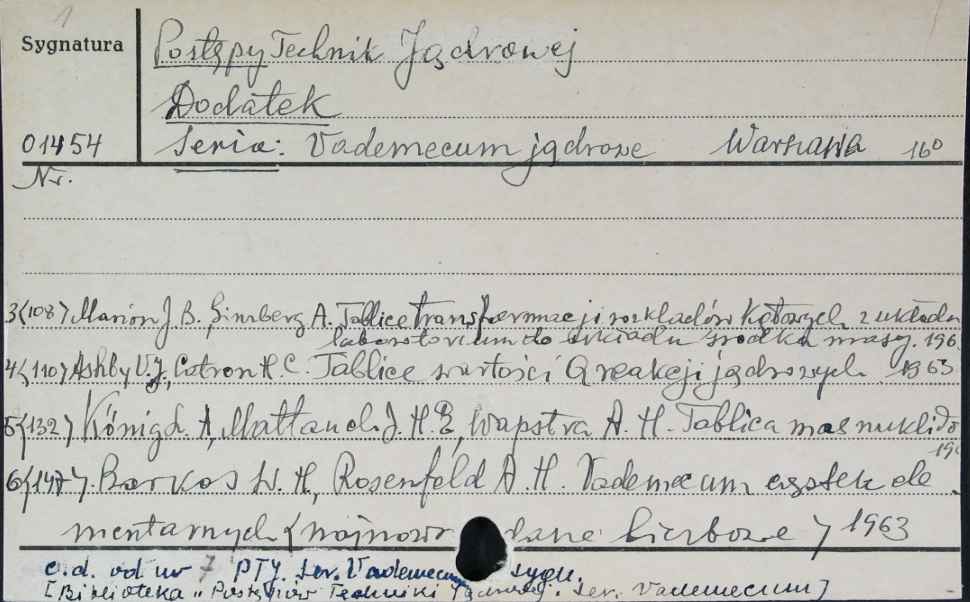 1
Sygnatura
Postępy Technik Jądrowej
Dodatek
01454
Seria: Vademecum jądrowe Warszawa 16°
Nr.
3<108> Marion J. B. Ginsberg A. Tablice transformacji rozkładów kątowych z układu
laboratorium do układu środka masy. 196
4<110> Ashby V.J., Catron H. C. Tablice wartości Q reakcji jądrowych. 1963
5<132> König L. A, Mattauch J. H. E, Wapstra A. H. Tablica mas nuklido
19
6<147>. Barkas W. H, Rosenfeld A. H. Vademecum cząstek ele
mentarnych <najnow dane liczbowe> 1963
c.d. od nr 7 PTJ. Ser. Vademecum sygn.
[Biblioteka "Postępów Techniki Jądrowej. Ser. Vademecum]